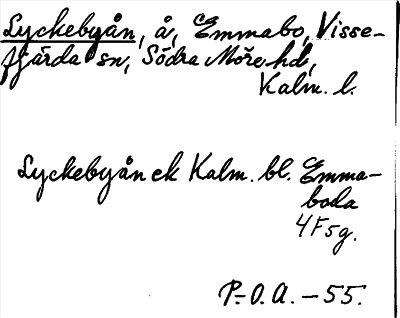 Lyckebyån, å, Emmabo, Visse-
fjärda sn, Södra Möre hd,
Kalm. l.
Lyckebyån ek Kalm. bl. Emma-
boda
4F5g.
P.-O.A. - 55.